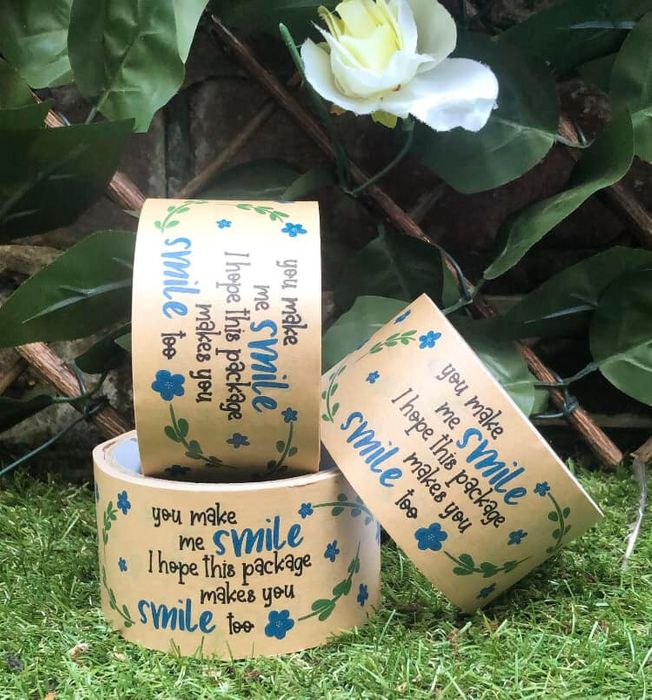 you make
me smile
I hope this package
makes you
smile too
you make
me smile
I hope this package
makes you
smile too
you make
me smile
I hope this package
makes you
smile too